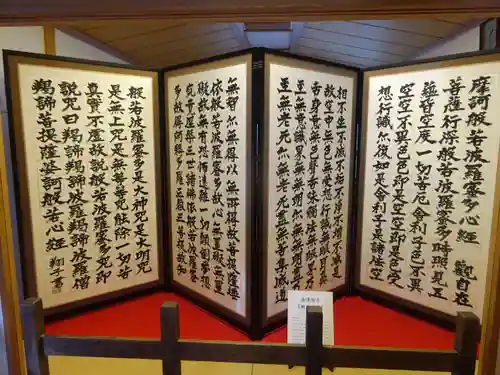 摩訶般若波羅蜜多心経　観自在
菩薩行深般若波羅蜜多時照見五
蘊皆空度一切苦厄舎利子色不異
空空不異色色即是空空即是色受
想行識亦復如是舎利子是諸法空
相不生不滅不垢不浄不増不減是
故空中無色無受想行識無眼耳鼻
舌身意無色声香味触法無眼界乃
至無意識界無無明亦無無明尽乃
至無老死亦無老死尽無苦集滅道
無智亦無得以無所得故菩提薩埵
依般若波羅蜜多故心無罣礙無罣
礙故無有恐怖遠離一切顛倒夢想
究竟涅槃三世諸仏依般若波羅蜜
多故得阿耨多羅三藐三菩提故知
般若波羅蜜多是大神呪是大明呪
是無上呪是無等等呪能除一切苦
真實不虚故説般若波羅蜜多呪即
説呪曰羯諦羯諦波羅羯諦波羅僧
羯諦菩提薩婆訶般若心経　翔子書